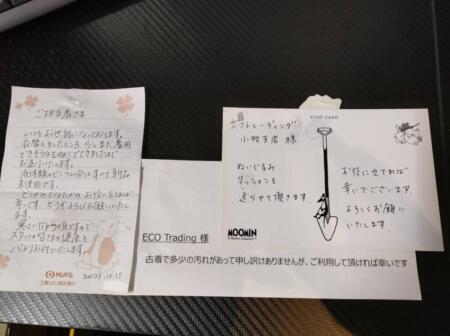 ご担当者さま
いつもお世話になっております。
衣替をしたところ、少しまだ着用
できそうなものがでてきましたので
お送りいたします。
すべて新品
未使用です。
どなたかのお役に立てれば
幸いです。どうぞよろしくお願いいたし
ます。
スタッフの皆さまの健康を
心よりお祈りいたします。
MUFG
三菱UFJ信託銀行
2023.10.15
POST CARD
エコトレーディング
小牧支店 様
ぬいぐるみ
クッションを
送らせて頂きます。
お役に立てれば
幸いでございます。
よろしくお願い
いたします。
MOOMIN
ECO Trading 様
古着で多少の汚れがあって申し訳ありませんが、ご利用して頂ければ幸いです